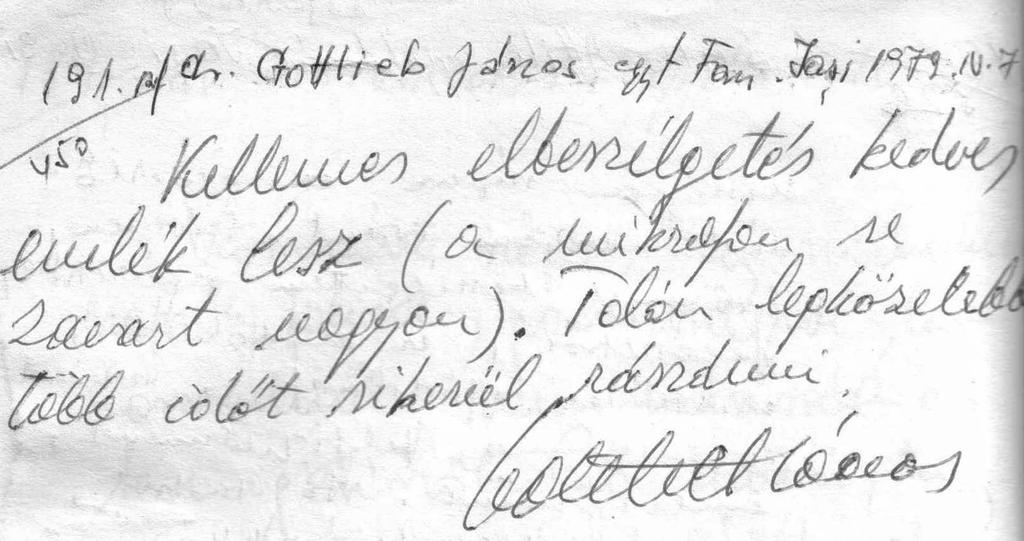 191. dr. Gottlieb János egy. t Fam. Iași 1979. IV. 7
450
Kellemes elbeszélgetés kedves
emlék lesz (a mikrofon se
zavart nagyon). Talán legközelebb
több időt sikerül rászánni.
Gottlieb János